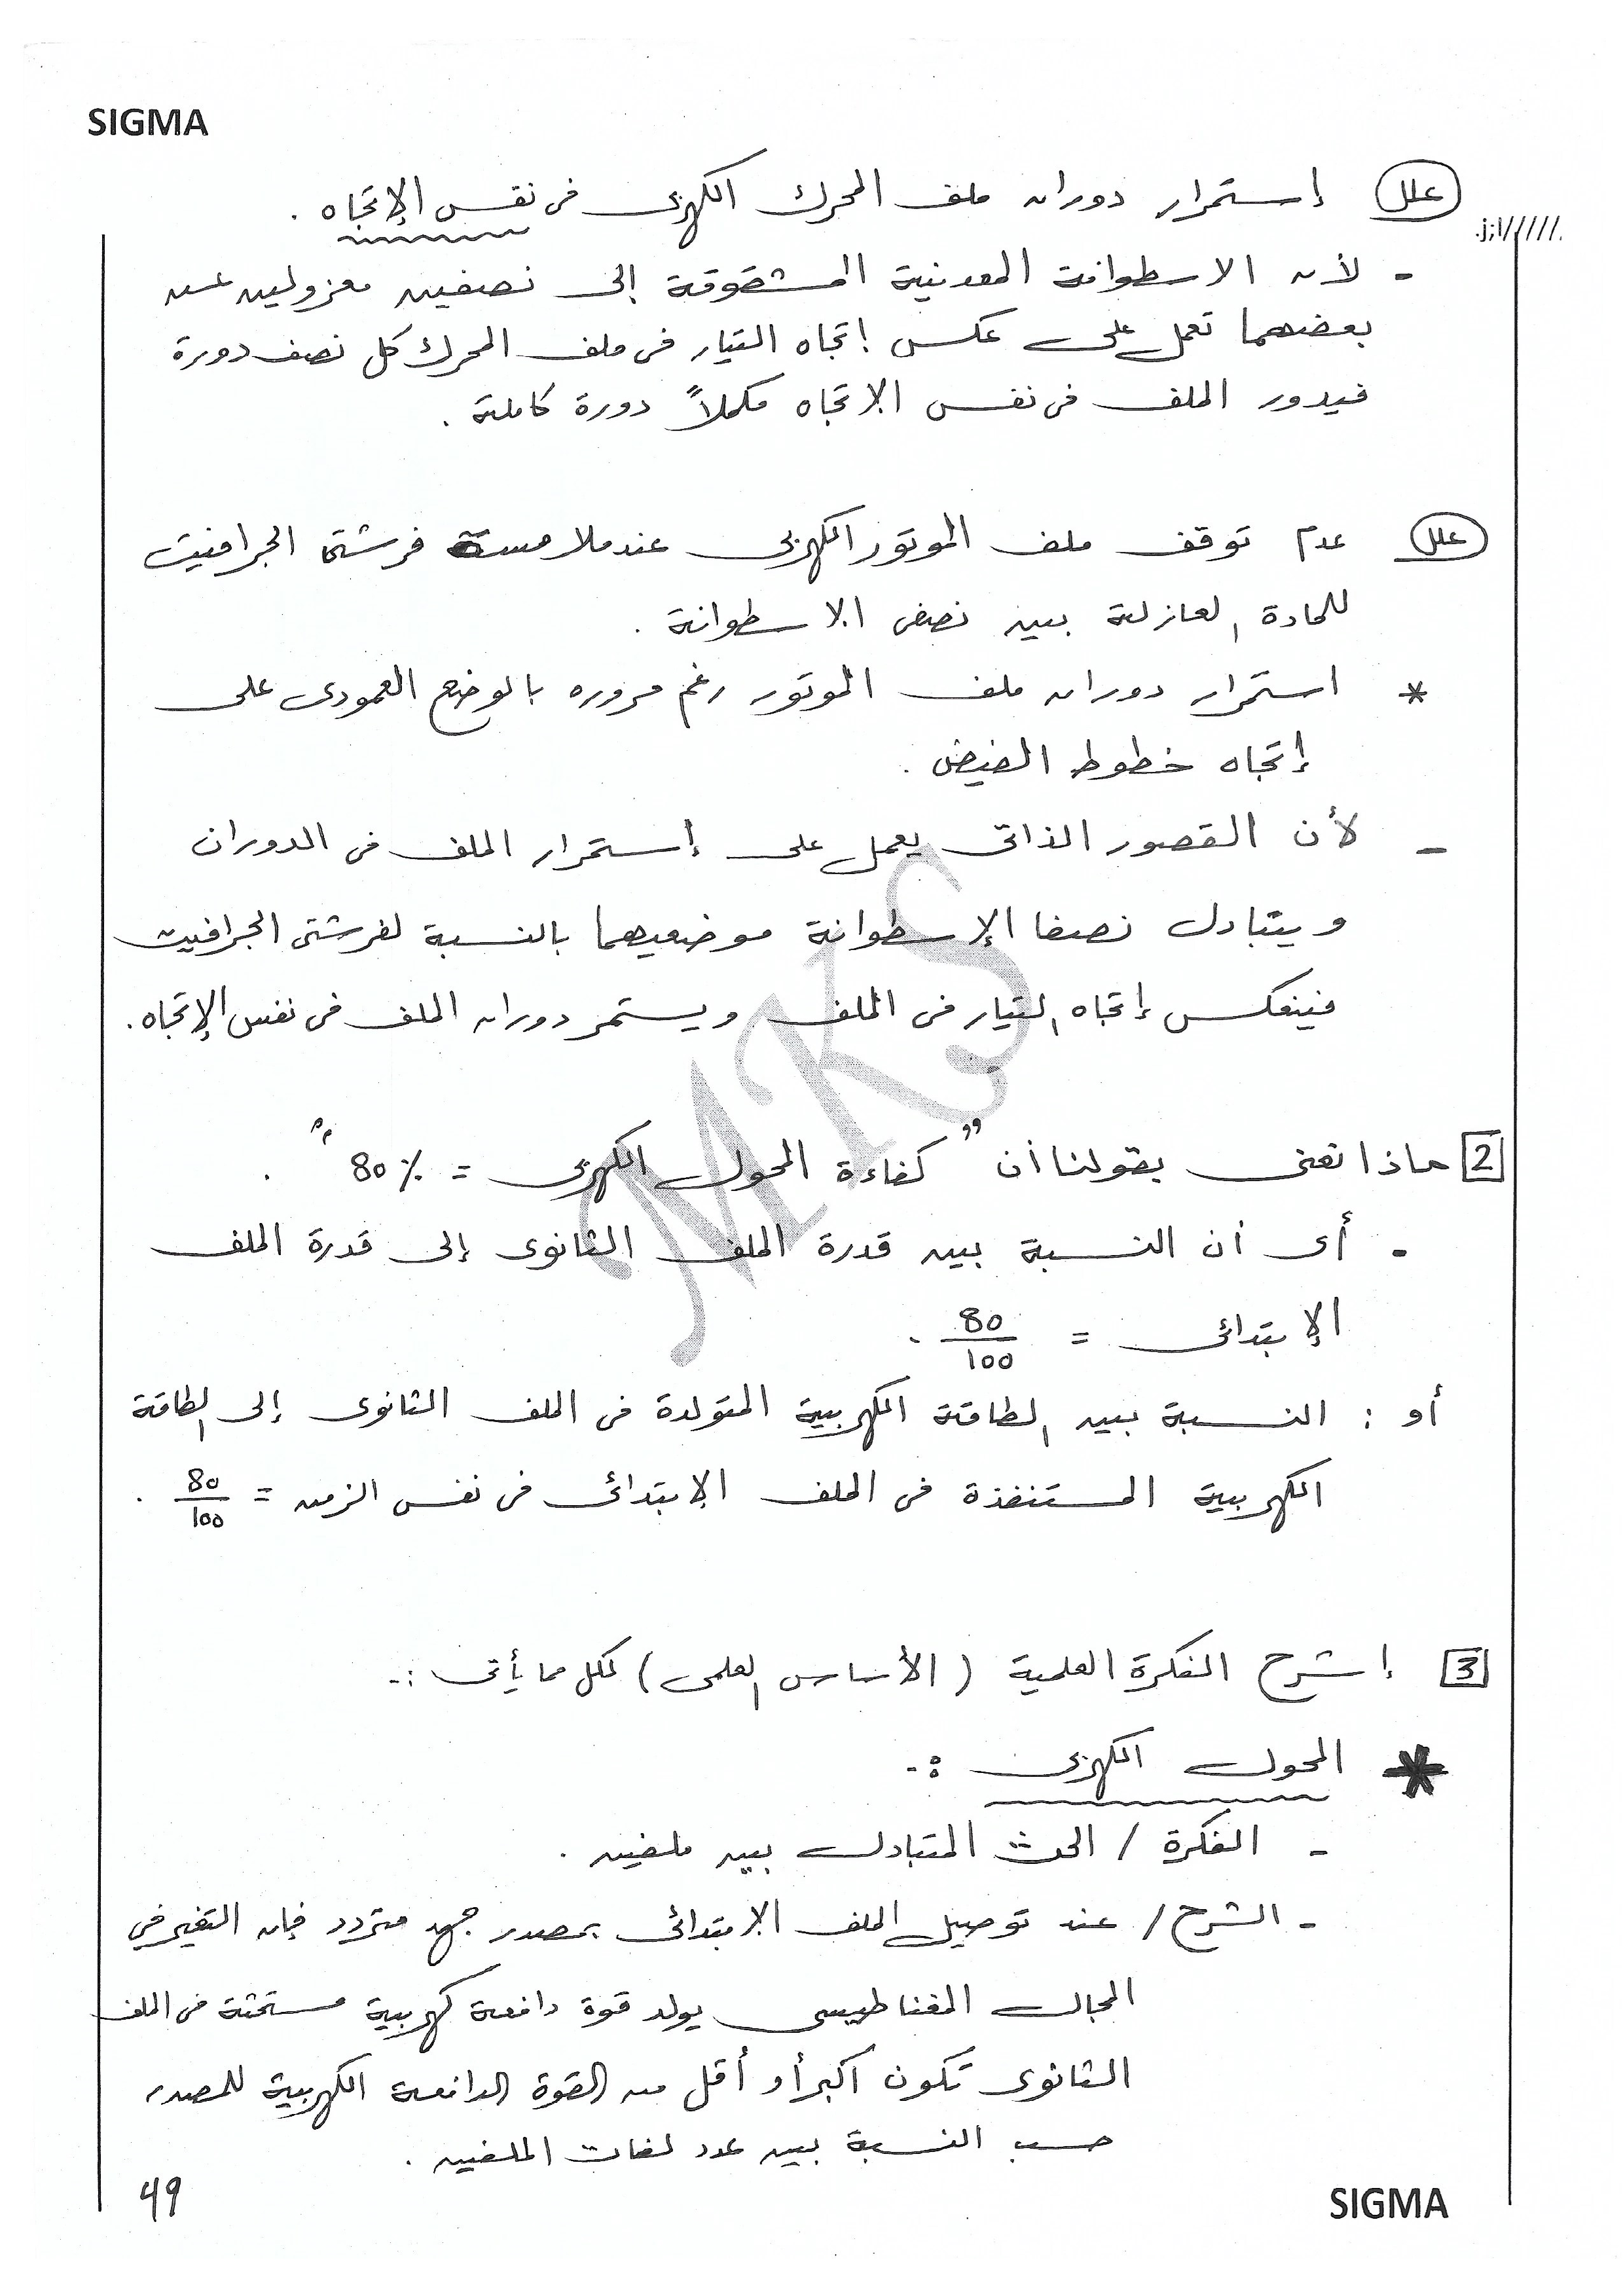 SIGMA
علل إستمرار دوران ملف المحرك الكهربى فى نفس الإتجاه .
- لأن الاسطوانة المعدنية المشقوقة إلى نصفين معزولين عن
بعضهما تعمل على عكس إتجاه التيار فى ملف المحرك كل نصف دورة
فيدور الملف فى نفس الإتجاه مكملاً دورة كاملة .
علل عدم توقف ملف الموتور الكهربى عند ملامسة فرشتا الجرافيت
للمادة العازلة بين نصفى الاسطوانة .
* استمرار دوران ملف الموتور رغم مروره بالوضع العمودى على
إتجاه خطوط الفيض .
- لأن القصور الذاتى يعمل على إستمرار الملف فى الدوران
ويتبادل نصفا الإسطوانة موضعيهما بالنسبة لفرشتى الجرافيت
فينعكس إتجاه التيار فى الملف ويستمر دوران الملف فى نفس الإتجاه .
MKS
2 ماذا نعنى بقولنا أن " كفاءة المحول الكهربى = 80٪ " .
- أى أن النسبة بين قدرة الملف الثانوى إلى قدرة الملف
الإبتدائى = 80/100 .
أو : النسبة بين الطاقة الكهربية المتولدة فى الملف الثانوى إلى الطاقة
الكهربية المستنفذة فى الملف الإبتدائى فى نفس الزمن = 80/100 .
3 إشرح الفكرة العلمية ( الأساس العلمى ) لكل مما يأتى :-
* المحول الكهربى :-
- الفكرة / الحث المتبادل بين ملفين .
- الشرح / عند توصيل الملف الإبتدائى بمصدر جهد متردد فإن التغير في
المجال المغناطيسى يولد قوة دافعة كهربية مستحثة فى الملف
الثانوى تكون اكبر أو أقل من القوة الدافعة الكهربية للمصدر
حسب النسبة بين عدد لفات الملفين .
49
SIGMA